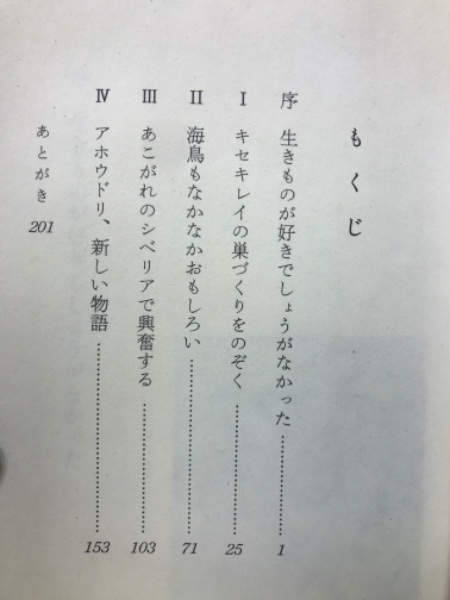 もくじ
序 生きものが好きでしょうがなかった……………………1
Ⅰ キセキレイの巣づくりをのぞく……………………25
Ⅱ 海鳥もなかなかおもしろい……………………71
Ⅲ あこがれのシベリアで興奮する……………………103
Ⅳ アホウドリ、新しい物語……………………153
あとがき 201